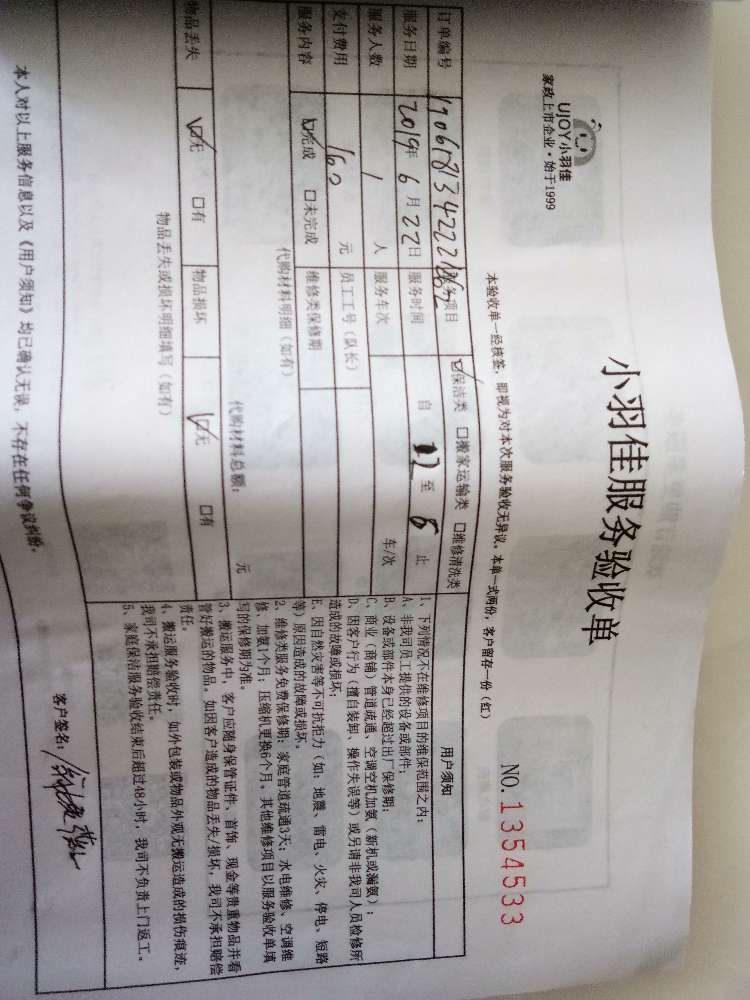 UJOY小羽佳
家政上市企业·始于1999
小羽佳服务验收单
本验收单一经核签，即视为对本次服务验收无异议。本单一式两份，客户留存一份（红）
NO.1354533
订单编号 服务项目 保洁类 □搬家运输类 □维修清洗类
服务日期 2019年6月22日 服务时间 自 12 至 6 止
服务人数 1 人 服务车次 车/次
支付费用 160 元 员工工号（队长）
服务内容 完成 □未完成 维修类保修期
代购材料明细（如有）
代购材料总额： 元
物品丢失 无 □有 物品损坏 无 □有
物品丢失或损坏明细填写（如有）
用户须知
1、下列情况不在维修项目的维保范围之内：
A、非我司员工提供的设备或部件；
B、设备或部件本身已经超过出厂保修期；
C、商业（商铺）管道疏通、空调空机加氨（新机或漏氨）；
D、因客户行为（擅自装卸、操作失误等）或另请非我司人员检修所
造成的故障或损坏；
E、因自然灾害等不可抗拒力（如：地震、雷电、火灾、停电、短路
等）原因造成的故障或损坏。
2、维修类服务免费保修期：家庭管道疏通3天；水电维修、空调维
修、加氨1个月；压缩机更换6个月。其他维修项目以服务验收单填
写的保修期为准。
3、搬运服务中，客户应随身保管证件、首饰、现金等贵重物品并看
管好搬运的物品。如因客户造成的物品丢失/损坏，我司不承担赔偿
责任。
4、搬运服务验收时，如外包装或物品外观无搬运造成的损伤痕迹，
我司不承担赔偿责任。
5、家庭保洁服务验收结束后超过48小时，我司不负责上门返工。
本人对以上服务信息以及《用户须知》均已确认无误，不存在任何争议纠纷。
客户签名：